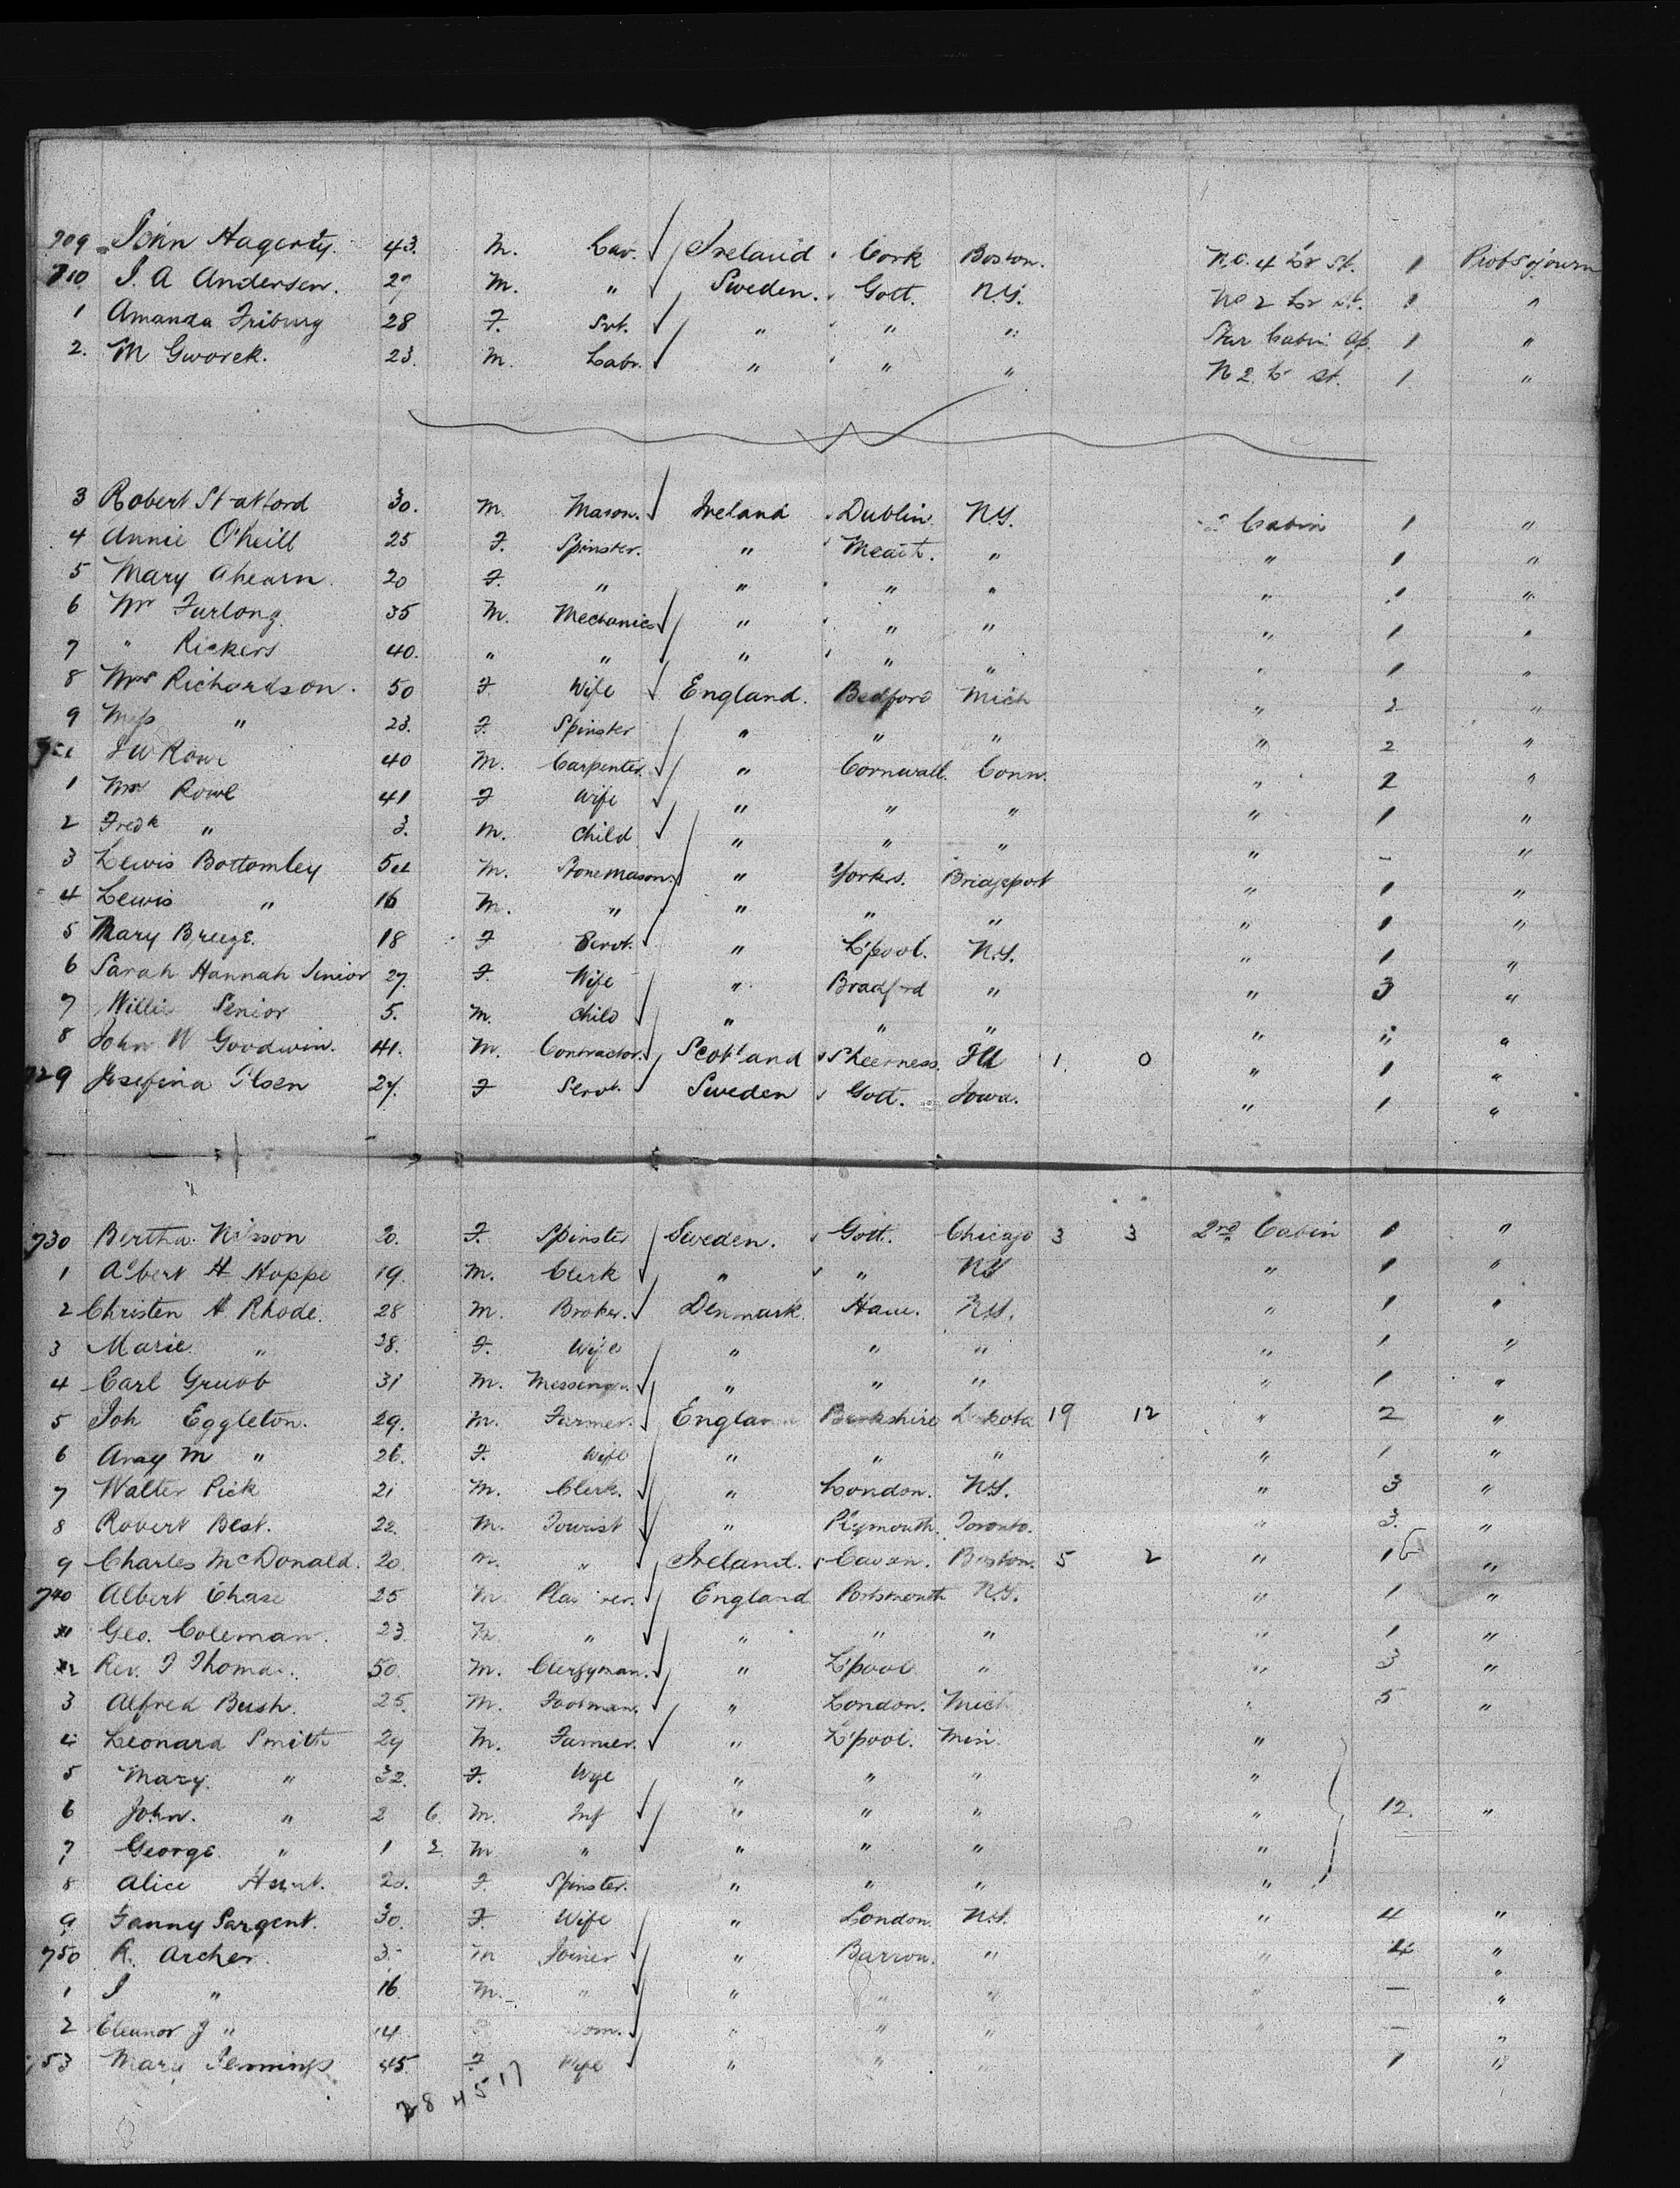 709 John Hagerty. 43. M. Lab. Ireland Cork Boston. No. 4 Lr St. 1 Prot Sojourn
710 J. A Andersen. 27 M. " Sweden. Gott. N.Y. No 2 Lr St. 1 "
1 Amanda Friburg 28 F. Svt. " " " Star Cabin Af. 1 "
2. M Gworek. 23. M. Labr. " " " N 2 Lr St. 1 "
3 Robert Statford 30. M. Mason. Ireland Dublin. N.Y. 2 Cabin 1 "
4 Annie O'Neill 25 F. Spinster. " Meath. " " 1 "
5 Mary Ahearn. 20 F. " " " " " 1 "
6 Mr Furlong. 35 M. Mechanic " " " " 1 "
7 " Rickers 40. " " " " " " 1 "
8 Mrs Richardson. 50 F. Wife England. Bedford Mich " 2 "
9 Miss " 23. F. Spinster " " " " 2 "
J W Rowe 40 M. Carpenter. " Cornwall. Conn. " 2 "
1 Mrs Rowe 41 F Wife " " " " 1 "
2 Fredk " 3. M. Child " " " " - "
3 Lewis Bottomley 54 M. Stonemason. " Yorks. Bridgeport " 1 "
4 Lewis " 16 M. " " " " " 1 "
5 Mary Breeze. 18 F Servt. " L'pool. N.Y. " 1 "
6 Sarah Hannah Senior 27. F. Wife " Bradford " " 3 "
7 Willie Senior 5. M. Child " " " " " "
8 John W Goodwin. 41. M. Contractor. Scotland Sheerness. Ill 1. 0 " 1 "
729 Josefina Olsen 27. F Servt. Sweden Gott. Iowa. " 1 "
730 Bertha Nilsson 20. F. Spinster Sweden. Gott. Chicago 3 3 2nd Cabin 1 "
1 Albert H Hoppe 19. M. Clerk " " NY " 1 "
2 Christen H Rhode. 28 M. Broker. Denmark. Ham. N.Y. " 1 "
3 Marie. " 38. F. Wife " " " " 1 "
4 Carl Gruob 31 M. Messenger. " " " " 1 "
5 Joh Eggleton. 29. M. Farmer. England Berkshire Dakota 19 12 " 2 "
6 Amy M " 26. F. Wife " " " " 1 "
7 Walter Pick 21 M. Clerk. " London. N.Y. " 3 "
8 Robert Best. 22. M. Tourist " Plymouth. Toronto. " 3. "
9 Charles McDonald. 20. M. " Ireland. Cavan. Boston. 5 2 " 1 "
740 Albert Chase 25 M. England Portsmouth N.Y. " 1 "
1 Geo. Coleman. 23. M. " " " " " 1 "
2 Rev. J Thomas. 50. M. Clergyman. " L'pool " " 3 "
3 Alfred Bush. 25. M. Footman. " London. Mich " 5 "
4 Leonard Smith 29 M. Farmer. " L'pool. Min. "
5 Mary. " 32. F. Wife " " " "
6 John. " 2 6 M. Inf " " " " 12. "
7 George. " 1 2 M " " " " "
8 Alice Hunt. F. Spinster. " " " "
9 Fanny Sargent. 30. F. Wife " London. N.Y. " 4 "
750 R. Archer. M Joiner " Barrow. " " 4 "
1 J " 16 M. " " " " " - "
2 Eleanor J " 14 " " " " - "
753 Mary Jennings 45. F Wife " " " 1 "
28 4 5 17